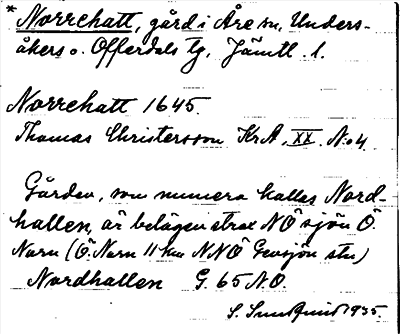 * Norrehatt, gård i Åre sn, Unders-
åkers o. Offerdals tg, Jämtl. l.
Norrehatt 1645.
Thomas Christersson KrA, XX. No 4
Gården, som numera kallas Nord-
hallen, är belägen strax NÖ sjön Ö.
Noren (Ö. Noren 11 km NNÖ Gevsjön stn)
Nordhallen G. 65 N.O.
S. Sundqvist 1935.